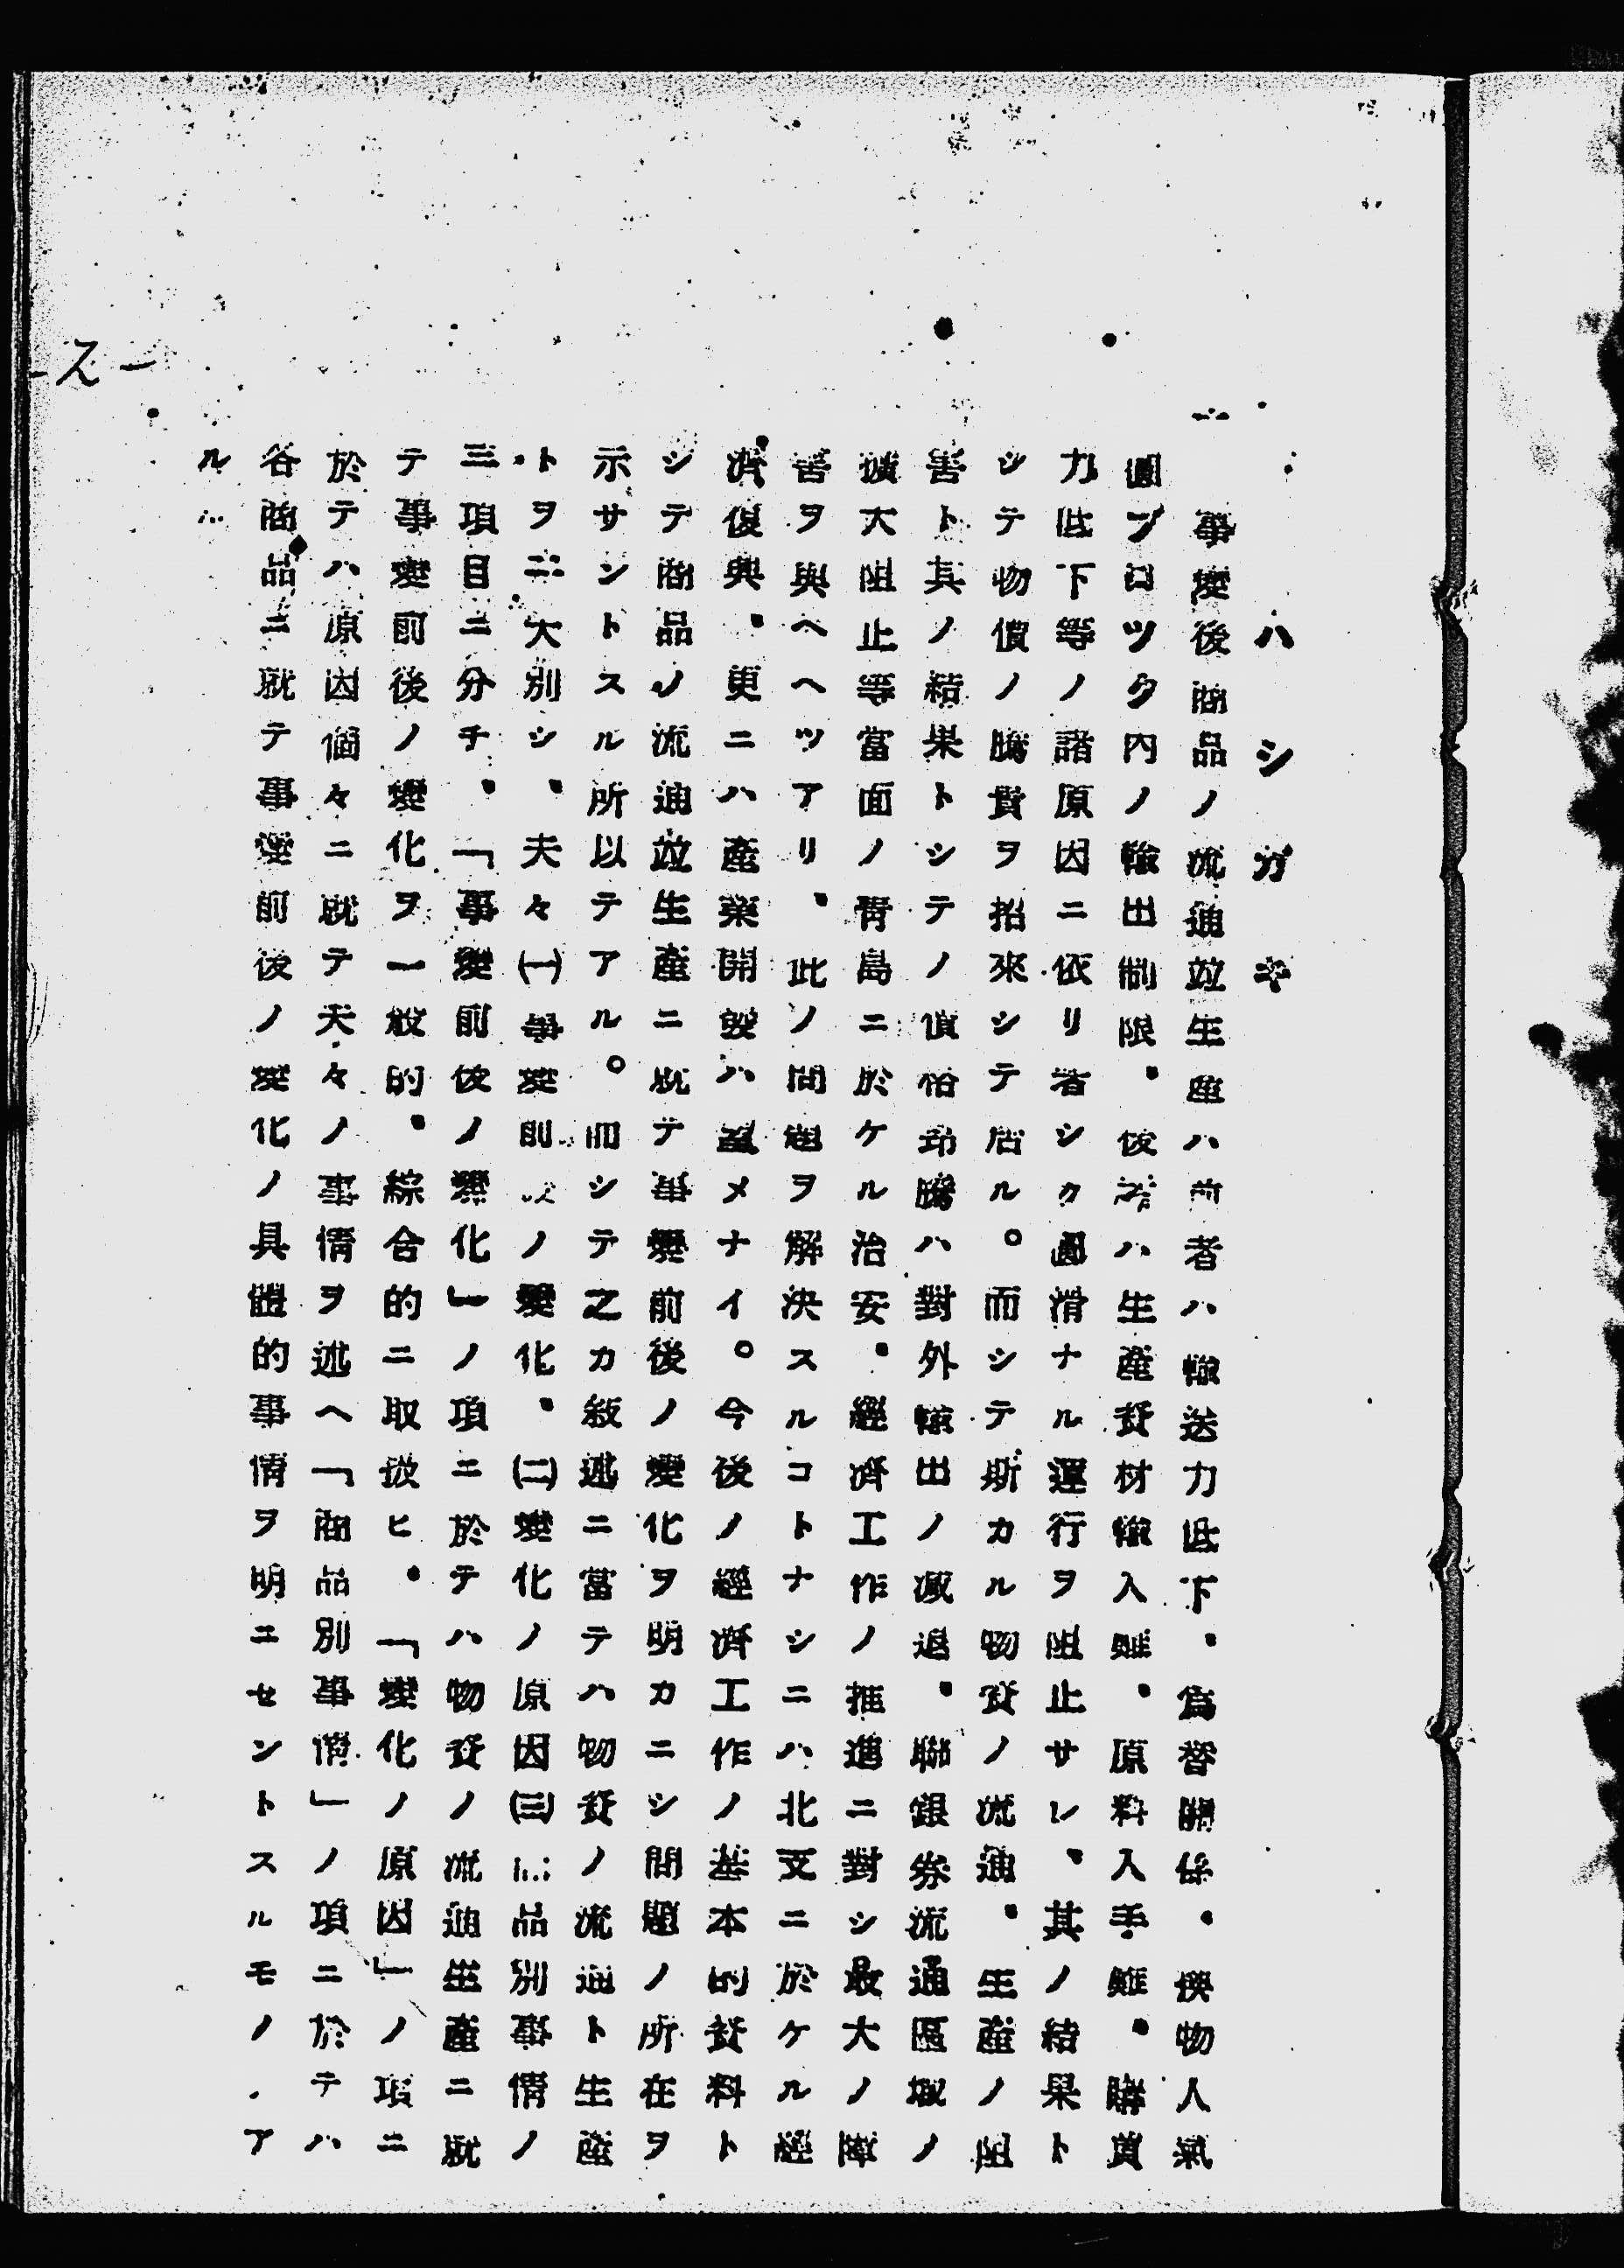 ハシガキ
一、事變後商品ノ流通竝生産ハ前者ハ輸送力低下、爲替關係、換物人氣
圓ブロツク內ノ輸出制限、後者ハ生產資材輸入難、原料入手難、購買
力低下等ノ諸原因ニ依リ著シク圓滑ナル運行ヲ阻止サレ、其ノ結果ト
シテ物價ノ騰貴ヲ招來シテ居ル。而シテ斯カル物資ノ流通、生産ノ阻
害ト其ノ結果トシテノ價格昻騰ハ對外輸出ノ減退、聯銀券流通區域ノ
擴大阻止等當面ノ靑島ニ於ケル治安、經濟工作ノ推進ニ對シ最大ノ障
害ヲ與ヘヘツアリ、此ノ問題ヲ解決スルコトナシニハ北支ニ於ケル經
濟復興、更ニハ產業開發ハ望メナイ。今後ノ經濟工作ノ基本的資料ト
シテ商品ノ流通竝生產ニ就テ事變前後ノ變化ヲ明カニシ問題ノ所在ヲ
示サントスル所以テアル。而シテ之カ敍述ニ當テハ物資ノ流通ト生産
トヲ二大別シ、夫々(一)事變前後ノ變化、(二)變化ノ原因(三)商品別事情ノ
三項目ニ分チ、「事變前後ノ變化」ノ項ニ於テハ物資ノ流通生產ニ就
テ事變前後ノ變化ヲ一般的、綜合的ニ取扱ヒ、「變化ノ原因」ノ項ニ
於テハ原因個々ニ就テ夫々ノ事情ヲ述ヘ「商品別事情」ノ項ニ於テハ
各商品ニ就テ事變前後ノ變化ノ具體的事情ヲ明ニセントスルモノ、ア
ル